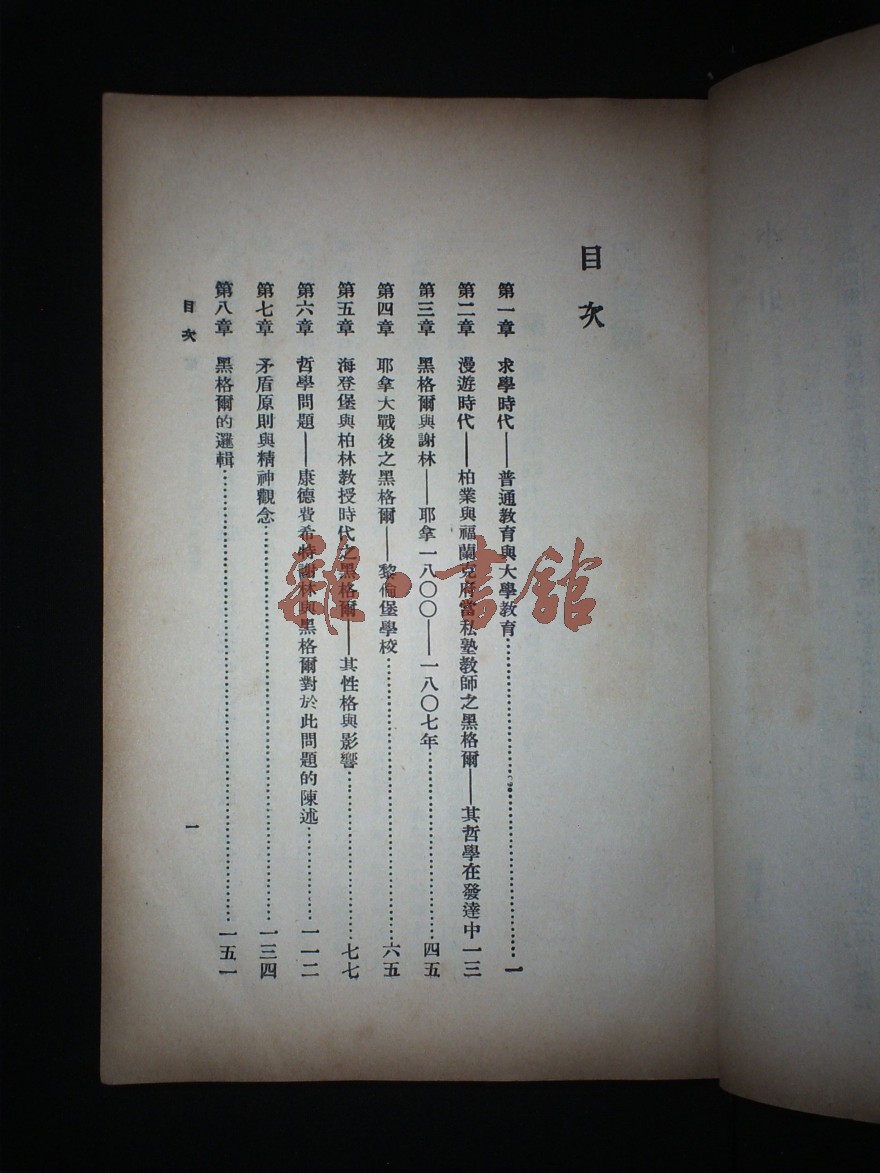 目次
第一章 求學時代——普通教育與大學教育……一
第二章 漫遊時代——柏業與福蘭克府當私塾教師之黑格爾——其哲學在發達中一三
第三章 黑格爾與謝林——耶拿一八〇〇——一八〇七年……四五
第四章 耶拿大戰後之黑格爾——黎倫堡學校……六五
第五章 海登堡與柏林教授時代之黑格爾——其性格與影響……七七
第六章 哲學問題——康德費希特謝林與黑格爾對於此問題的陳述……一一二
第七章 矛盾原則與精神觀念……一三四
第八章 黑格爾的邏輯……一五一
目次
一
雜·書館